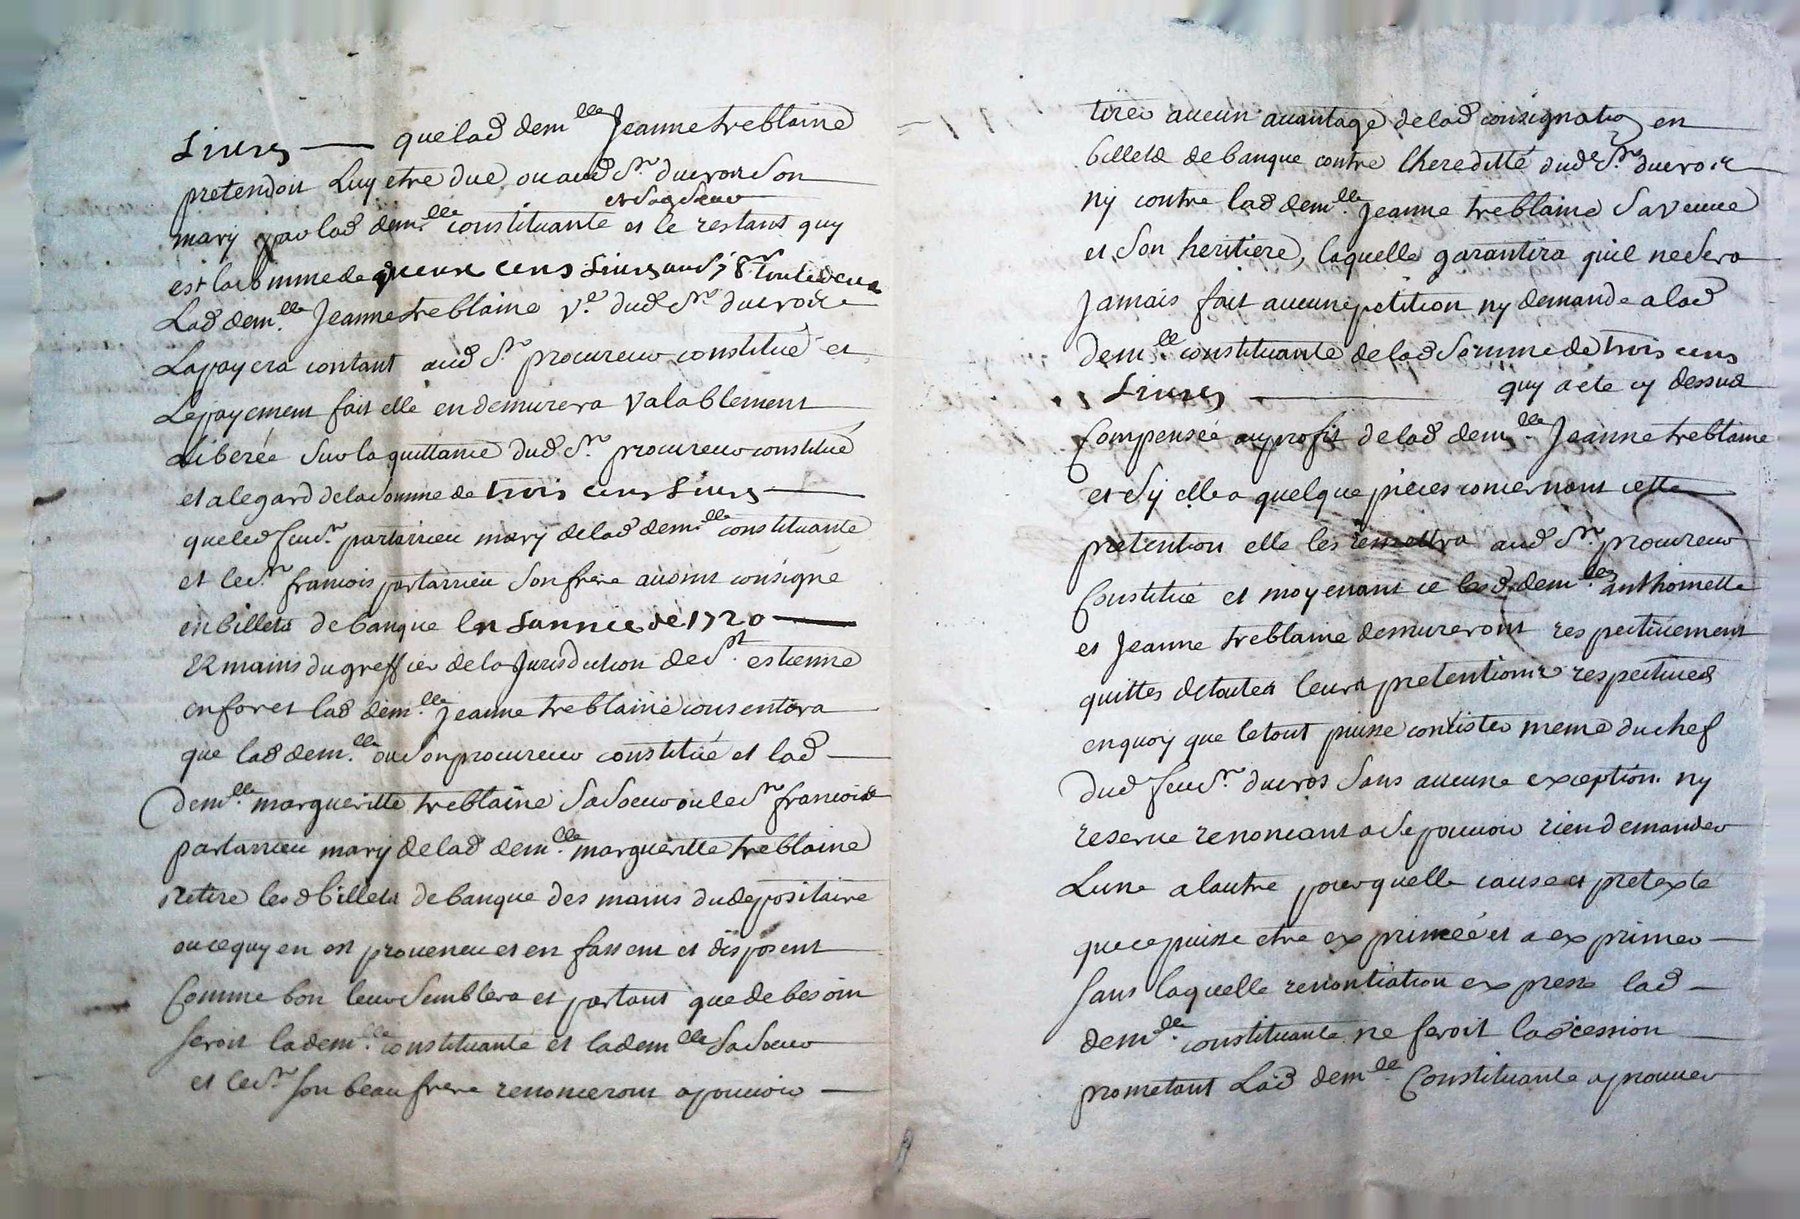 Livres — que lad demlle Jeanne treblaine
pretendoit Luy etre due ou aud Sr. ducros son
et sa soeur
mary par lad demlle constituante et le restant quy
est la somme de cens Livres
Lad demlle Jeanne treblaine ve. dud Sr. ducros
Lapayera contant aud Sr. procureur constitué et
Le payement fait elle en demurera Valablement
Liberée Sur la quittance dud Sr. procureur constitué
et alegard de la somme de trois cens Livres —
que led feu Sr. partarrieu mary de lad demlle constituante
et le Sr. francois partarrieu Son frere auoint consigné
en billets de banque en Lannée de 1720 —
ez mains du greffier de la Jurisdiction de St. estienne
en foret lad demlle Jeanne treblaine consentira
que lad demlle ou son procureur constitué et lad —
demlle margueritte treblaine Sa Soeur ou le Sr. francois
partarrieu mary de lad demlle margueritte treblaine
retire lesd billets de banque des mains du depositaire
ou ce quy en est prouenu et en fassent et disposent
Comme bon leur Semblera et partant que de besoin
seroit la demlle constituante et la demlle Sa Soeur
et le Sr. son beau frere renonceront a pouuoir —
tirer aucun auantage de lad consignation en
billets de banque contre lheredité dud Sr. ducros
ny contre lad demlle Jeanne treblaine Sa Veuue
et Son heritiere, laquelle garantira quil ne Sera
Jamais fait aucune petition ny demande a lad
demlle constituante de lad Somme de trois cens
Livres — quy a été cy dessus
Compensée au profit de lad demlle Jeanne treblaine
et Sy elle a quelque pieces concernant cette
pretention elle les remettra aud Sr. procureur
Constitué et moyenant ce lesd demlles anthoinette
et Jeanne treblaine demureront respectiuement
quittes de toutes leurs pretentions respectiues
en quoy que le tout puisse consister meme du chef
dud feu Sr. ducros Sans aucune exception ny
reserue renoncant a Se pouuoir rien demander
Lune a lautre pour quelle cause et pretexte
que ce puisse etre exprimée et a exprimer —
Sans laquelle renontiation expresse lad —
demlle constituante ne feroit lad cession
prometant Lad demlle Constituante aprouuer